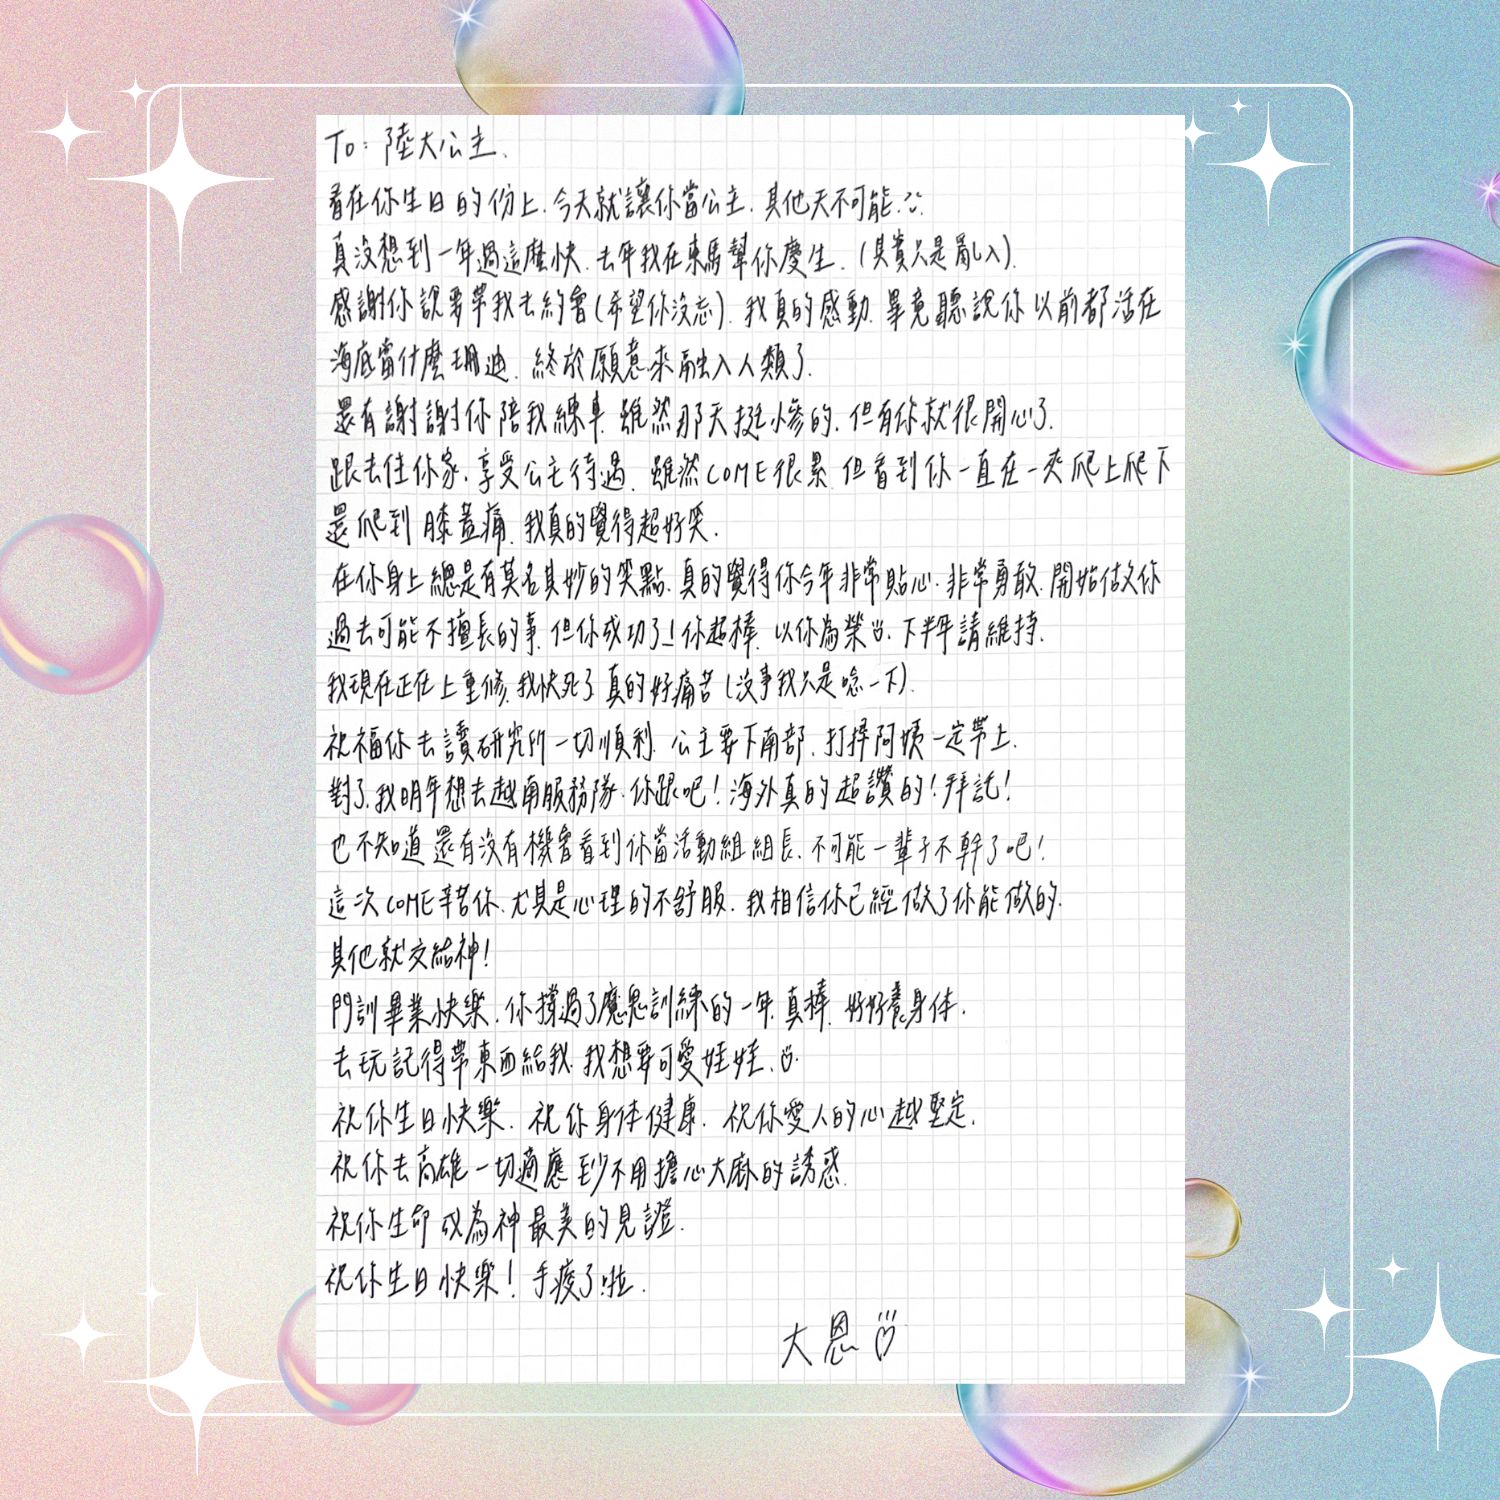 To: 陸大公主、
看在你生日的份上.今天就讓你當公主.其他天不可能.
真沒想到一年過這麼快.去年我在東馬幫你慶生.(其實只是亂入).
感謝你說要帶我去約會(希望你沒忘).我真的感動.畢竟聽說你以前都活在
海底當什麼珊迪.終於願意來融入人類了.
還有謝謝你陪我練車.雖然那天挺慘的.但有你就很開心了.
跟去住你家.享受公主待遇.雖然COME很累.但看到你一直在一夾爬上爬下
還爬到膝蓋痛.我真的覺得超好笑.
在你身上總是有莫名其妙的笑點.真的覺得你今年非常貼心.非常勇敢.開始做你
過去可能不擅長的事.但你成功了!你超棒.以你為榮.下半年請維持.
我現在正在上重修.我快死了.真的好痛苦(沒事我只是唸一下).
祝福你去讀研究所一切順利.公主要下南部.打掃阿姨一定帶上.
對了.我明年想去越南服務隊.你跟吧!海外真的超讚的!拜託!
也不知道還有沒有機會看到你當活動組組長.不可能一輩子不幹了吧!
這次COME辛苦你.尤其是心理的不舒服.我相信你已經做了你能做的.
其他就交給神!
門訓畢業快樂.你撐過了魔鬼訓練的一年.真棒.好好養身体.
去玩記得帶東西給我.我想要可愛娃娃.
祝你生日快樂.祝你身体健康.祝你愛人的心越堅定.
祝你去高雄一切適應到不用擔心大麻的誘惑.
祝你生命成為神最美的見證.
祝你生日快樂!手痠了啦.
大恩